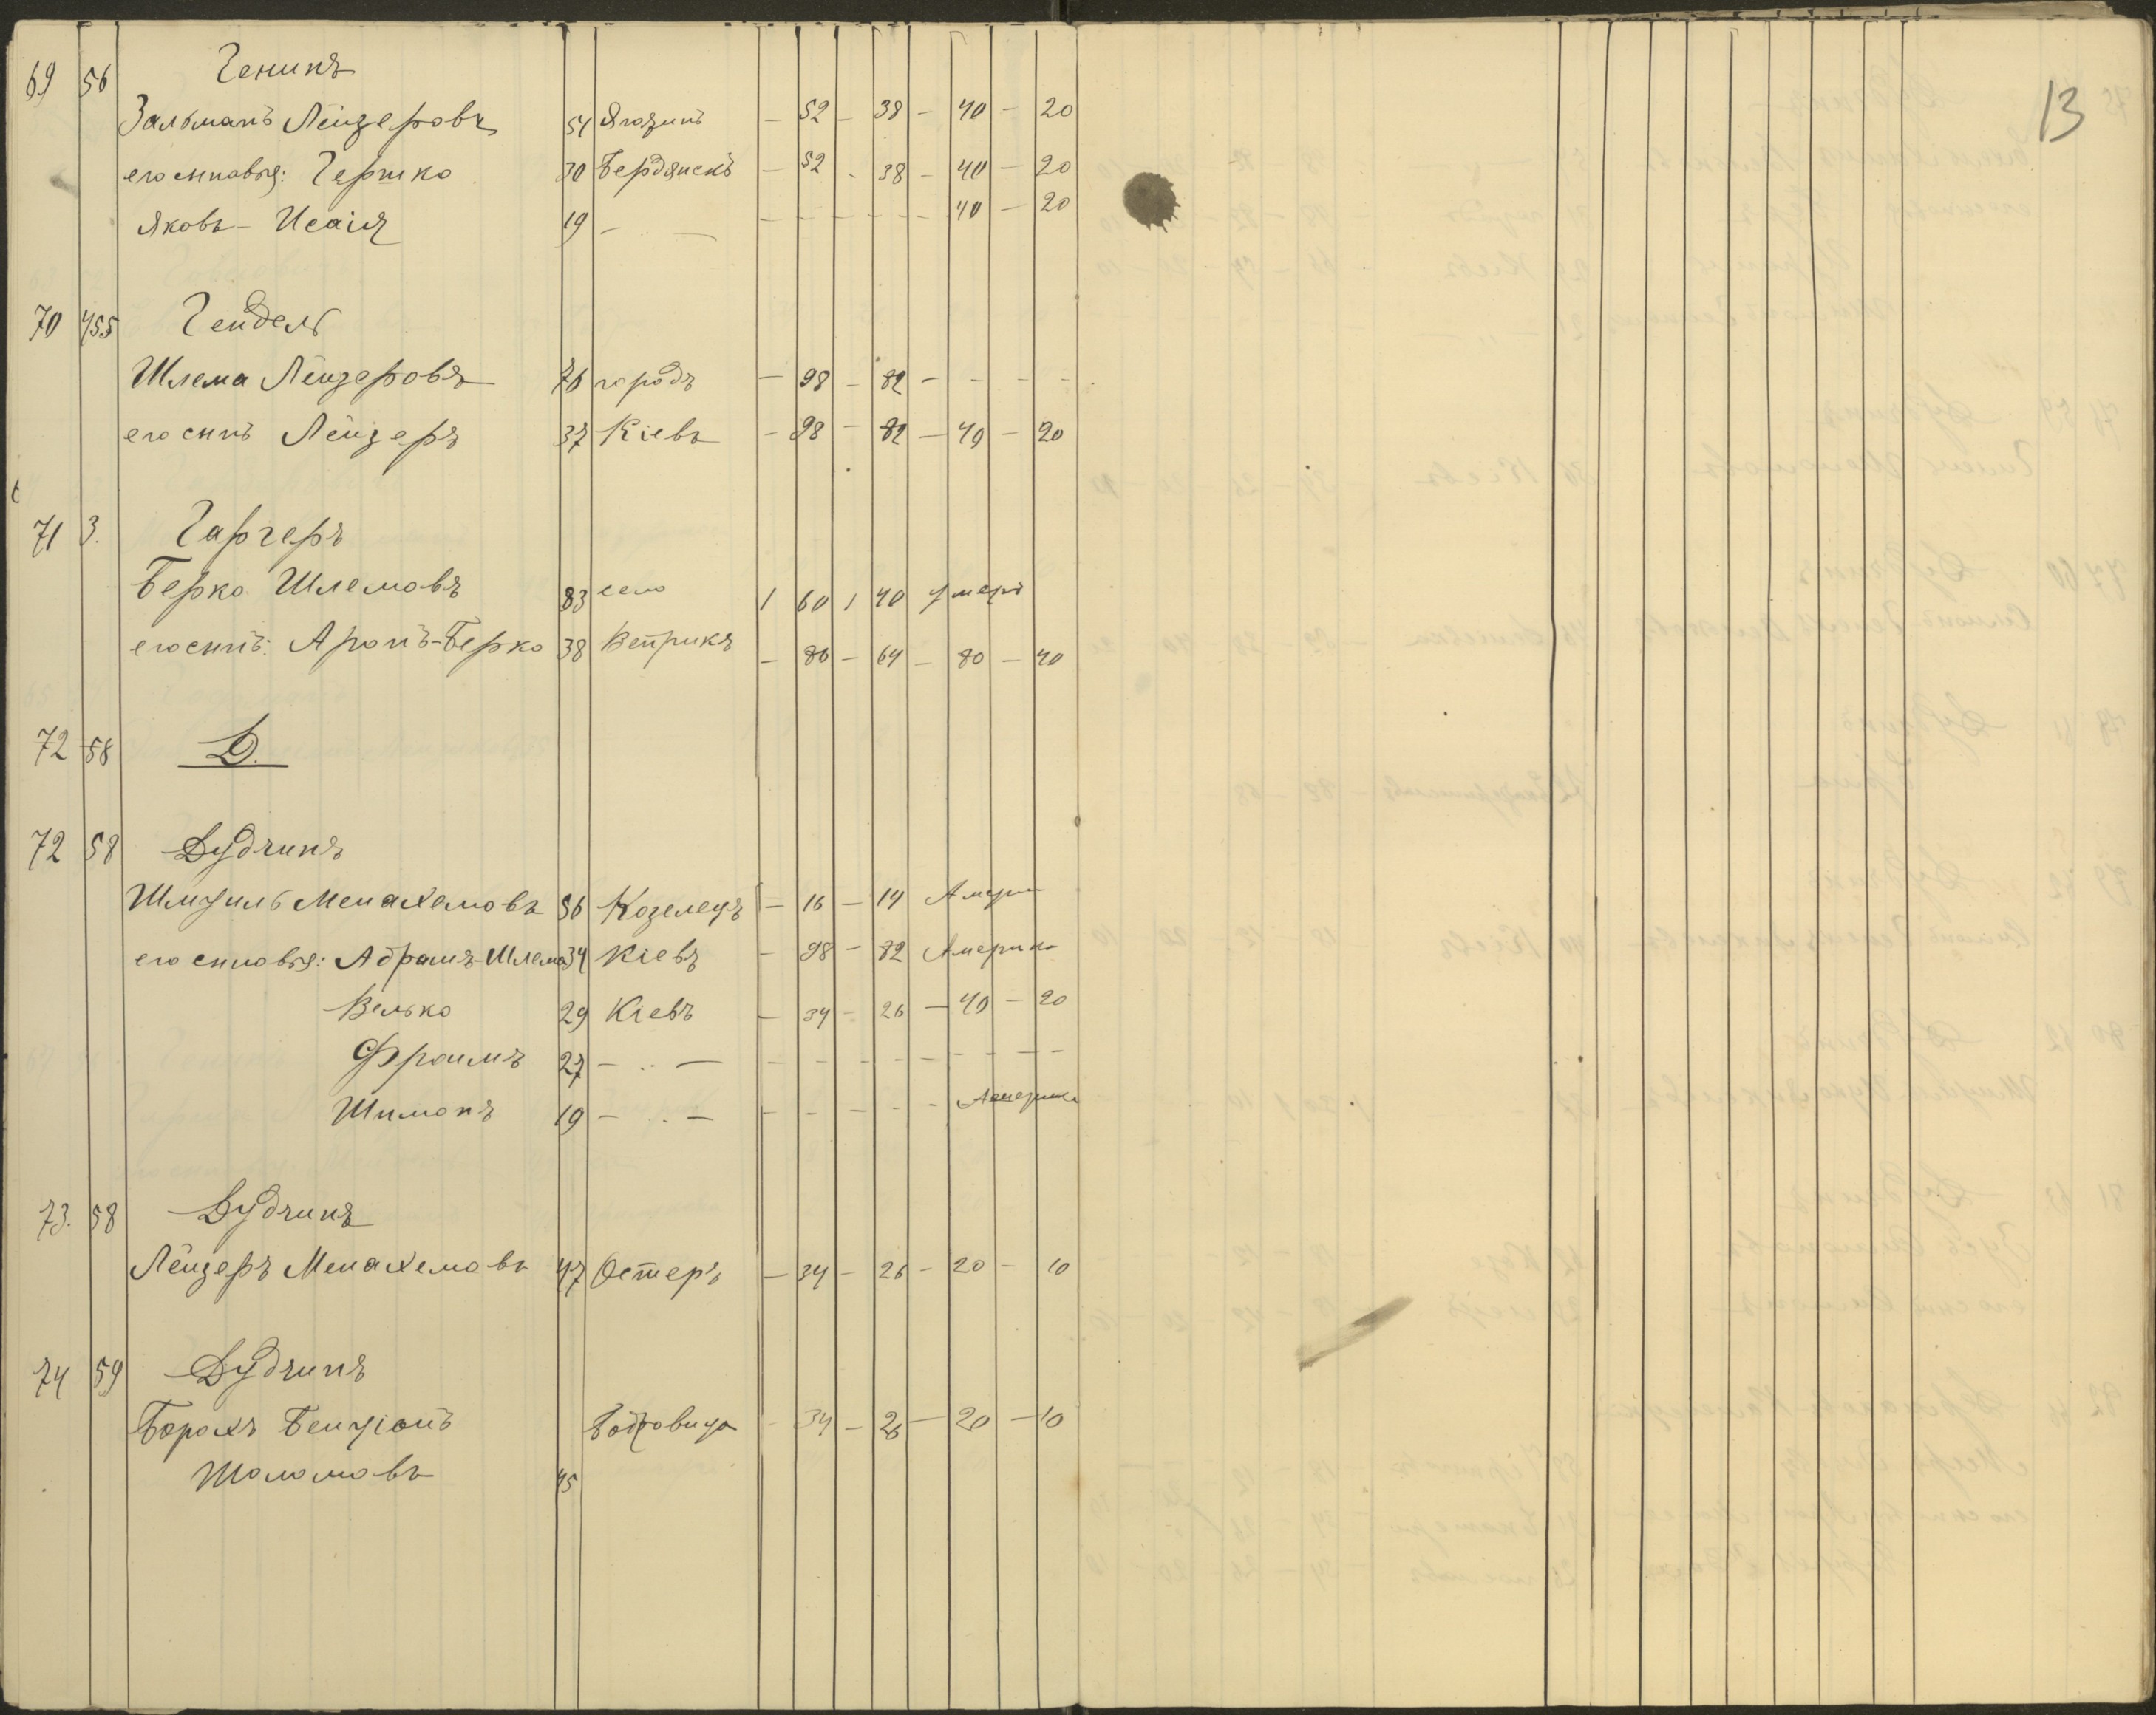 13
69 56 Генинъ
Зальманъ Лейзеровъ 54 Ягодинъ – 52 – 38 – 40 – 20
его сыновья: Гершко 30 Бердянскъ – 52 – 38 – 40 – 20
Яковъ-Исаія 19 – – – – – – – – 40 – 20
70 455 Гендель
Шлема Лейзеровъ 76 городъ – 98 – 82 – – – –
его сынъ Лейзеръ 37 Кіевъ – 98 – 82 – 40 – 20
71 3. Гаргеръ
Берко Шлемовъ 83 село 1 60 1 40 умеръ
его сынъ: Аронъ-Берко 38 Ветрикъ – 86 – 64 – 80 – 40
72 58 Д.
72 58 Дудчинъ
Шмуиль Менахемовъ 56 Козелецъ – 16 – 14 Америк
его сыновья: Абрамъ-Шлема 34 Кіевъ – 98 – 82 Америка
Велько 29 Кіевъ – 34 – 26 – 40 – 20
Фроимъ 27 – .. – – – – – – – – –
Шимонъ 19 – .. – – – – – – Америка
73. 58 Дудчинъ
Лейзеръ Менахемовъ 47 Остеръ – 34 – 26 – 20 – 10
74 59 Дудчинъ
Борохъ Бенціонъ Бобровица – 34 – 26 – 20 – 10
Шоломовъ 45